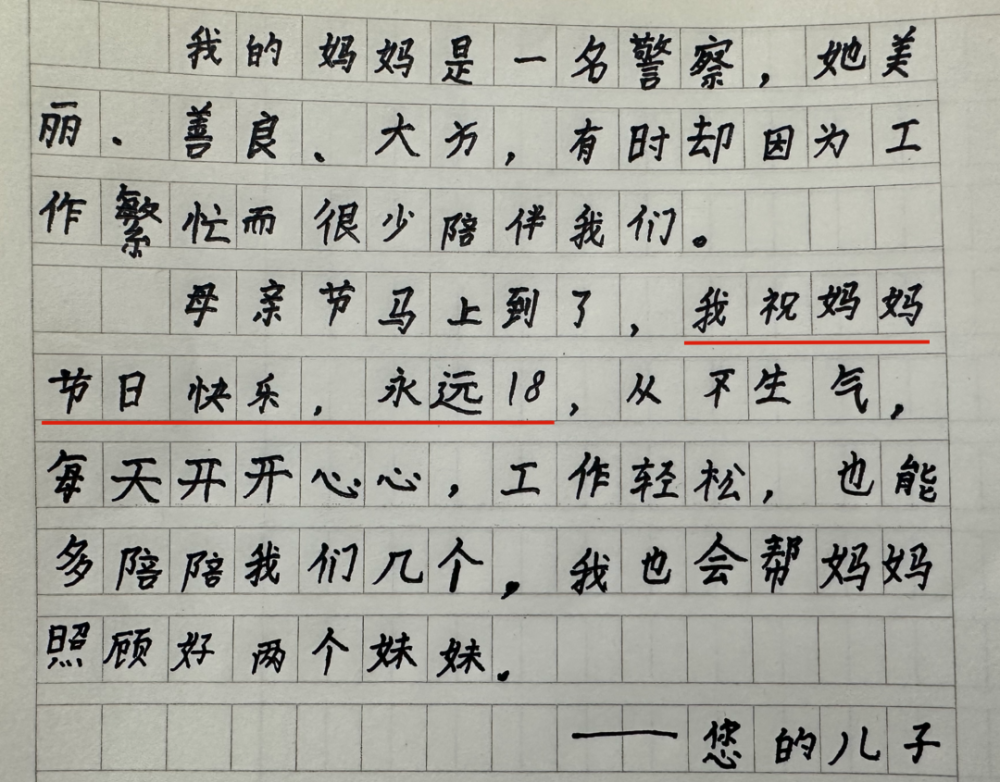 我的妈妈是一名警察，她美
丽、善良、大方，有时却因为工
作繁忙而很少陪伴我们。
母亲节马上到了，我祝妈妈
节日快乐，永远18，从不生气，
每天开开心心，工作轻松，也能
多陪陪我们几个，我也会帮妈妈
照顾好两个妹妹。
——您的儿子